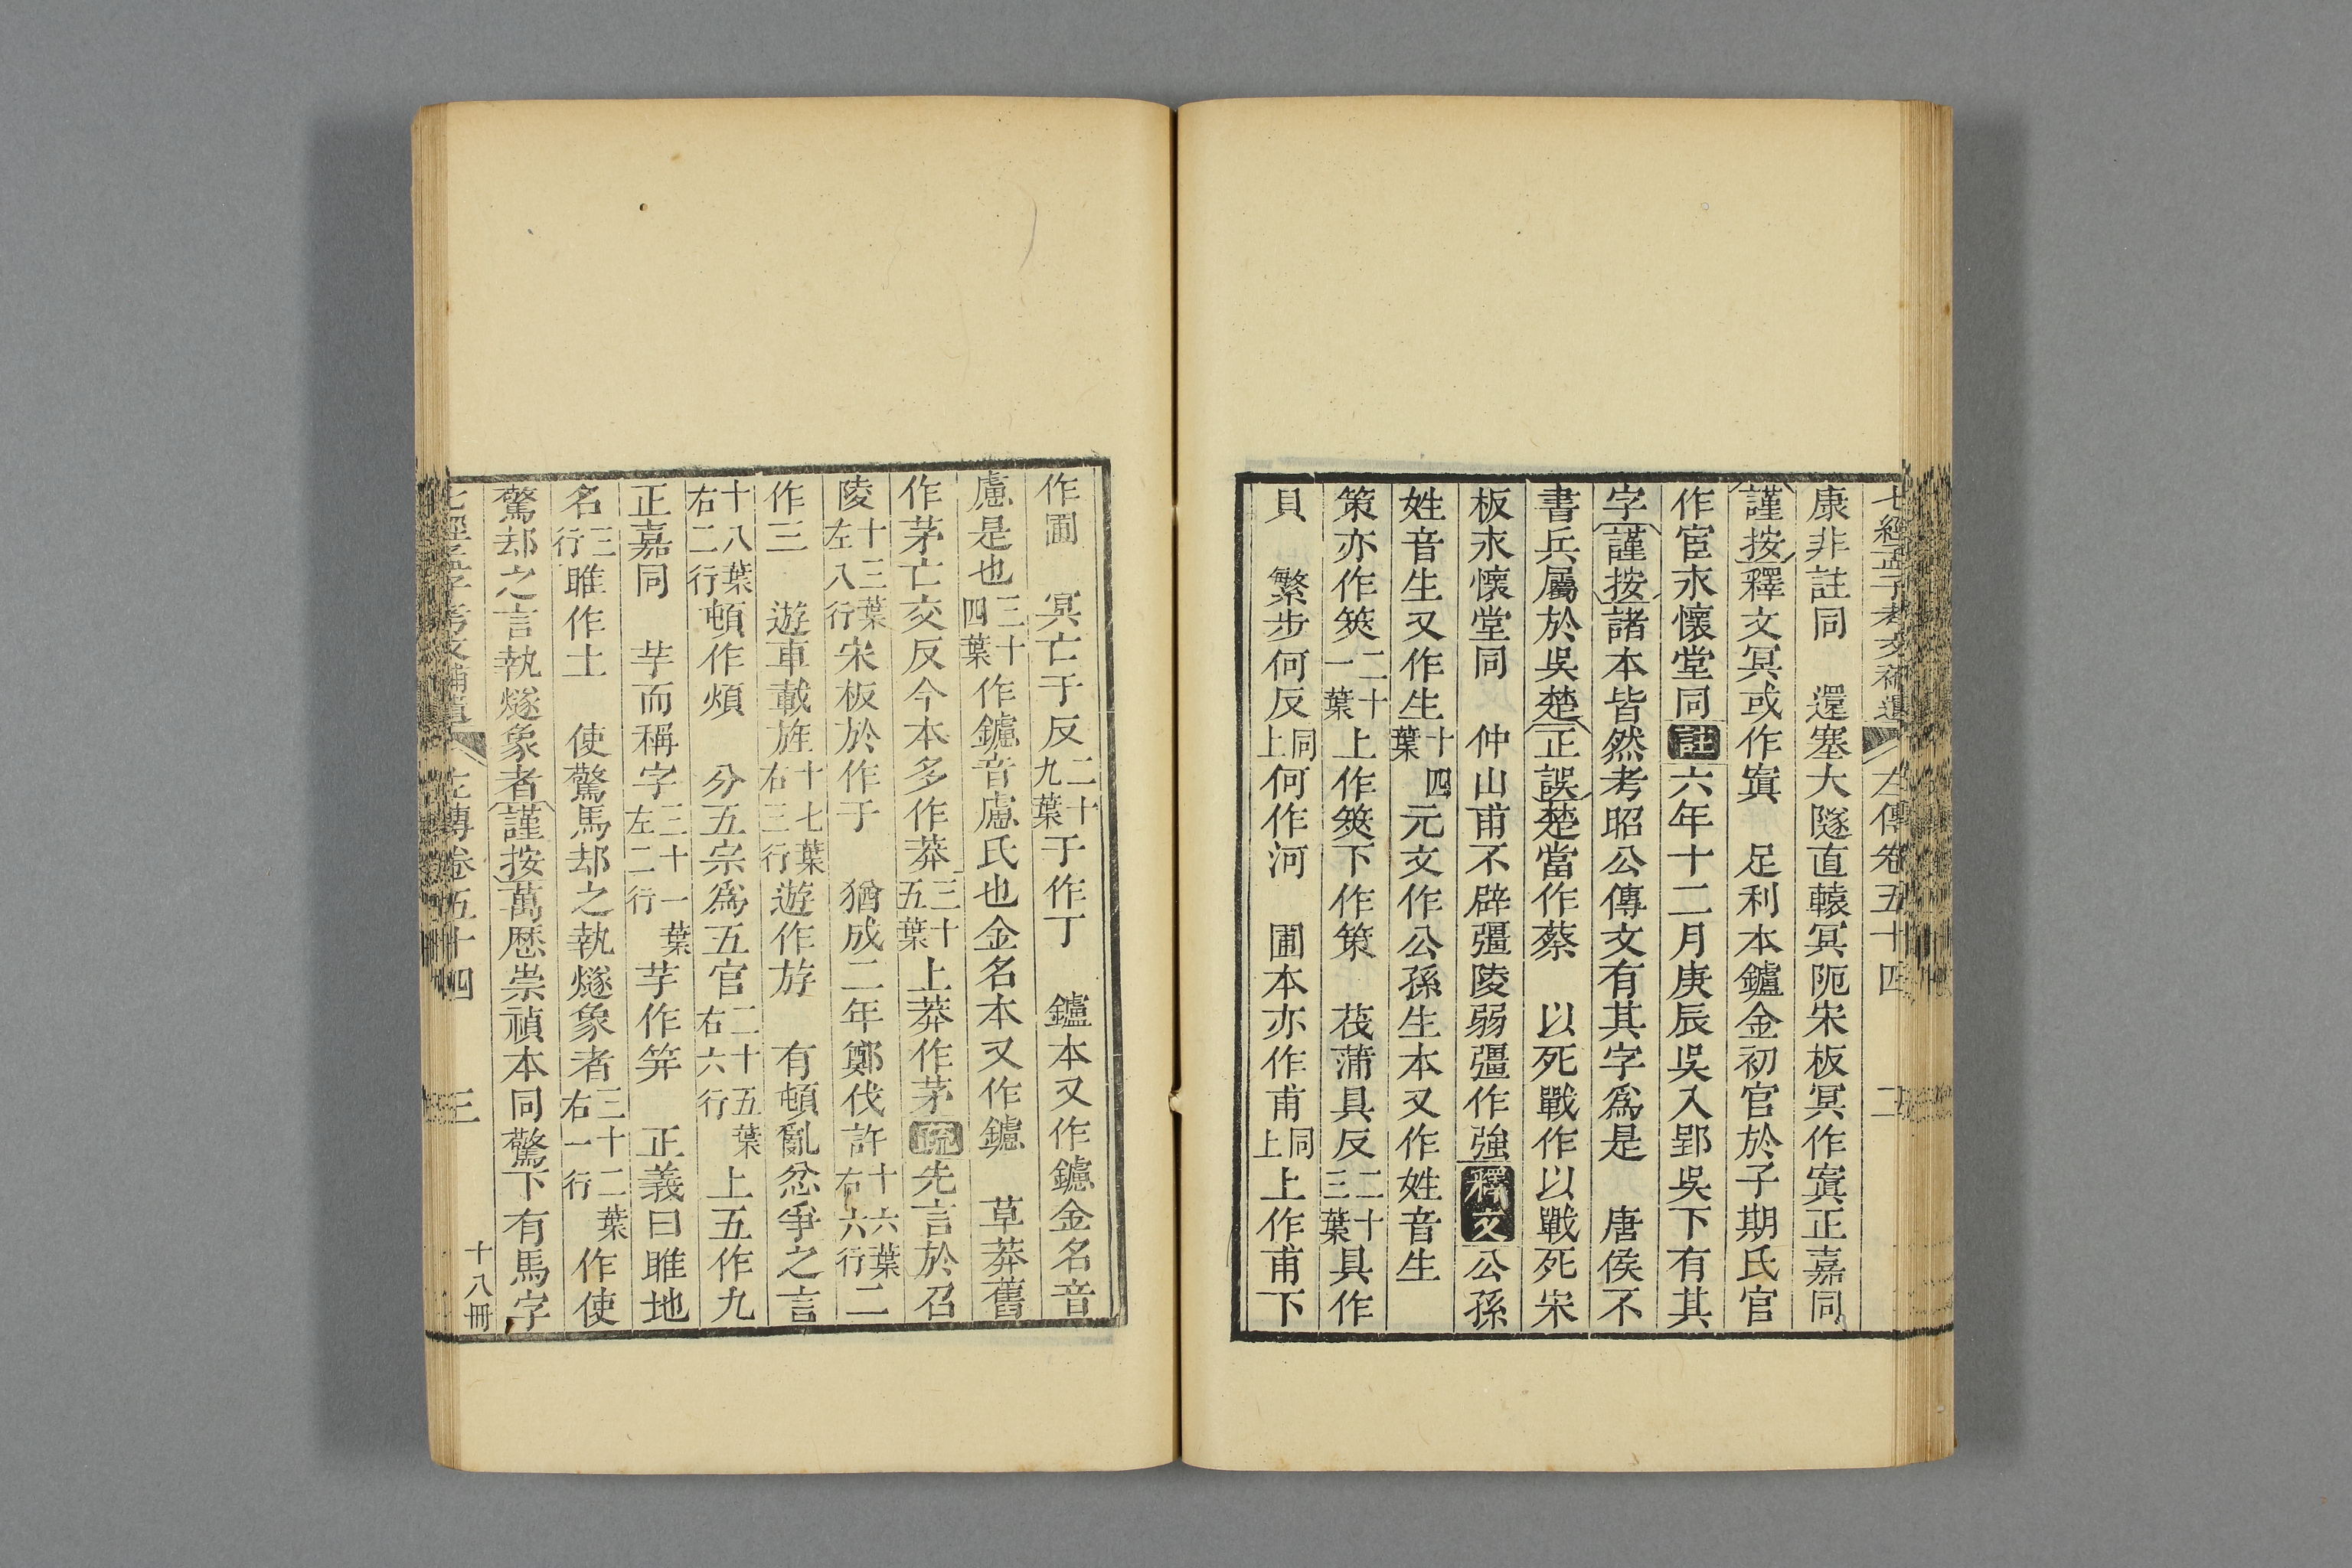 七經孟子考文補遺 左傳卷五十四 二
康非註同 還塞大隧直轅冥阨宋板冥作寘正嘉同
謹按釋文冥或作寘 足利本鑪金初官於子期氏官
作宦永懷堂同註六年十二月庚辰吳入郢吳下有其
字謹按諸本皆然考昭公傳文有其字爲是 唐侯不
書兵屬於吳楚正誤楚當作蔡 以死戰作以戰死宋
板永懷堂同 仲山甫不辟彊陵弱彊作強釋文公孫
姓音生又作生十四葉元文作公孫生本又作姓音生
策亦作筴二十一葉上作筴下作策 茷蒲具反二十三葉具作
貝 繁步何反同上何作河 圃本亦作甫同上上作甫下
作圃 冥亡于反二十九葉于作丁 鑪本又作鑢金名音
慮是也三十四葉作鑢音慮氏也金名本又作鑢 草莽舊
作茅亡交反今本多作莽三十五葉上莽作茅疏先言於召
陵十三葉左八行宋板於作于 猶成二年鄭伐許十六葉右六行二
作三 遊車載旌十七葉右三行遊作游 有頓亂忿爭之言
十八葉右二行頓作煩 分五宗爲五官二十五葉右六行上五作九
正嘉同 芉而稱字三十一葉左二行芉作笄 正義曰睢地
名三行睢作土 使驚馬却之執燧象者三十二葉右一行作使
驚却之言執燧象者謹按萬歷崇禎本同驚下有馬字
七經孟子考文補遺 左傳卷五十四 三 十八冊